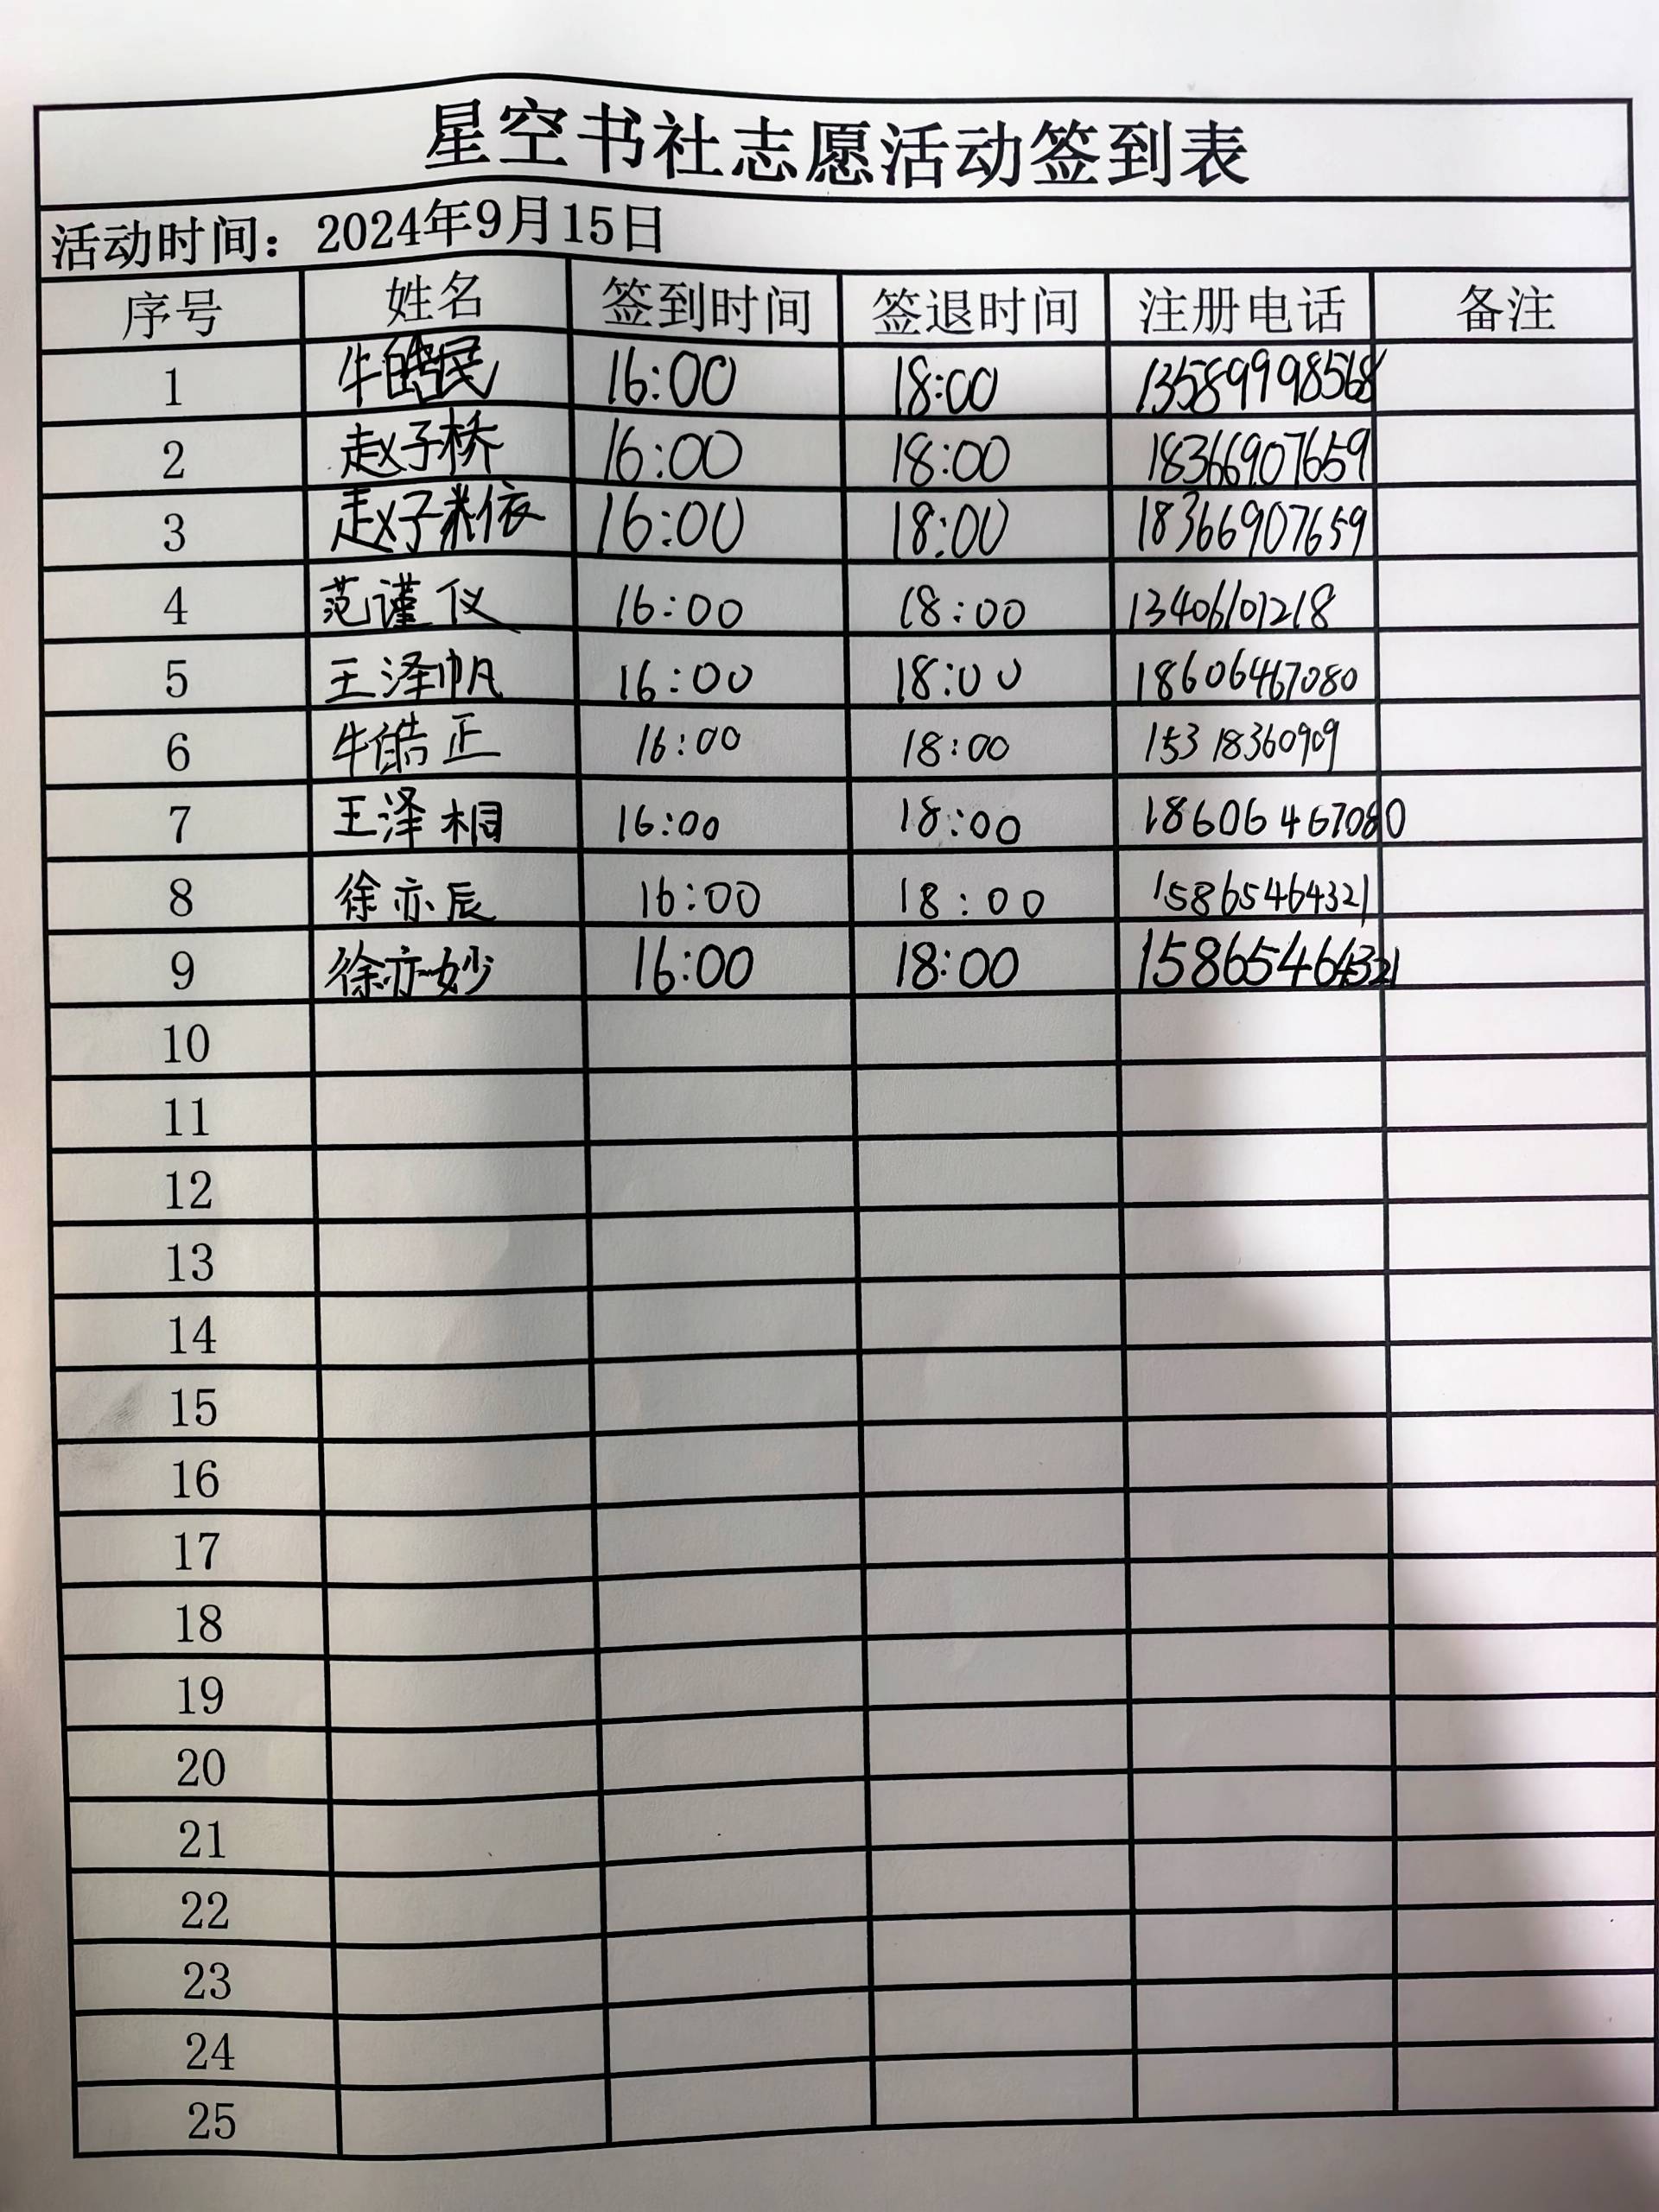 星空书社志愿活动签到表
活动时间：2024年9月15日
序号 姓名 签到时间 签退时间 注册电话 备注
1 牛皓民 16:00 18:00 13589998568
2 赵子桥 16:00 18:00 18366907659
3 赵子 依 16:00 18:00 18366907659
4 范谨仪 16:00 18:00 13406101218
5 王泽帆 16:00 18:00 18606467080
6 牛皓正 16:00 18:00 15318360909
7 王泽桐 16:00 18:00 18606467080
8 徐亦辰 16:00 18:00 15865464321
9 徐亦妙 16:00 18:00 15865464321
10
11
12
13
14
15
16
17
18
19
20
21
22
23
24
25